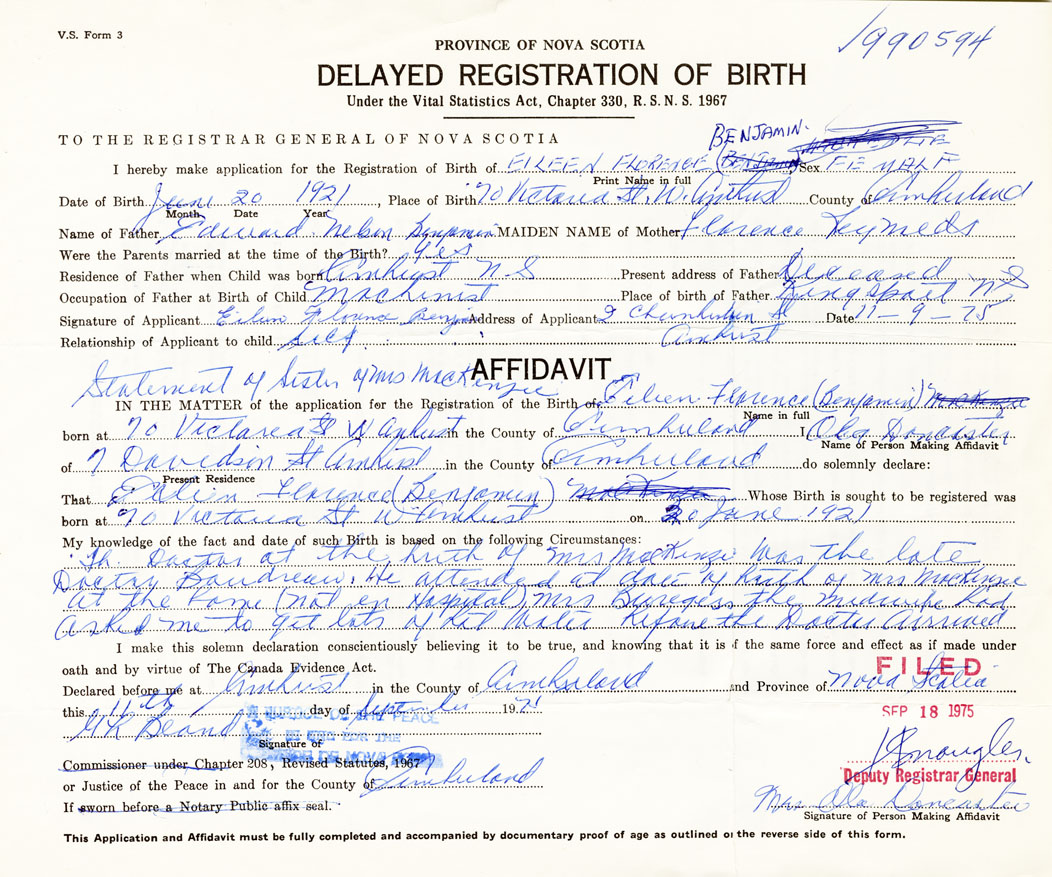 V.S. Form 3
1990594
PROVINCE OF NOVA SCOTIA
DELAYED REGISTRATION OF BIRTH
Under the Vital Statistics Act, Chapter 330, R. S. N. S. 1967
TO THE REGISTRAR GENERAL OF NOVA SCOTIA
BENJAMIN.
I hereby make application for the Registration of Birth of EILEEN FLORENCE Sex FEMALE
Print Name in full
Date of Birth June 20 1921, Place of Birth 70 Victoria St. W. Amherst County of Cumberland
Month Date Year
Name of Father Edward Nelson Benjamin MAIDEN NAME of Mother Florence
Were the Parents married at the time of the Birth? Yes
Residence of Father when Child was born Amherst N S Present address of Father Deceased
Occupation of Father at Birth of Child Machinist Place of birth of Father Kingsport N S
Signature of Applicant Eileen Florence Benjamin Address of Applicant 2 St Date 11-9-75
Relationship of Applicant to child self Amherst
AFFIDAVIT
Statement of Sister of Mrs MacKenzie
IN THE MATTER of the application for the Registration of the Birth of Eileen Florence (Benjamin)
Name in full
born at 70 Victoria St W Amherst in the County of Cumberland I Ola Doncaster
Name of Person Making Affidavit
of 7 Davidson St Amherst in the County of Cumberland do solemnly declare:
Present Residence
That Eileen Florence (Benjamin) Whose Birth is sought to be registered was
born at 70 Victoria St W Amherst on 20 June 1921
My knowledge of the fact and date of such Birth is based on the following Circumstances:
The Doctor at the birth of Mrs MacKenzie was the late
Doctor Boudreau. He attended at date of birth of Mrs MacKenzie
at the home (not in Hospital) Mrs Burgess the midwife had
asked me to get lots of hot water before the Doctor arrived
I make this solemn declaration conscientiously believing it to be true, and knowing that it is of the same force and effect as if made under
oath and by virtue of The Canada Evidence Act.
FILED
Declared before me at Amherst in the County of Cumberland and Province of Nova Scotia
this 11th day of September 19
SEP 18 1975
Signature of
Commissioner under Chapter 208, Revised Statutes, 1967
Deputy Registrar General
or Justice of the Peace in and for the County of Cumberland
If sworn before a Notary Public affix seal.
Mrs Ola Doncaster
Signature of Person Making Affidavit
This Application and Affidavit must be fully completed and accompanied by documentary proof of age as outlined on the reverse side of this form.